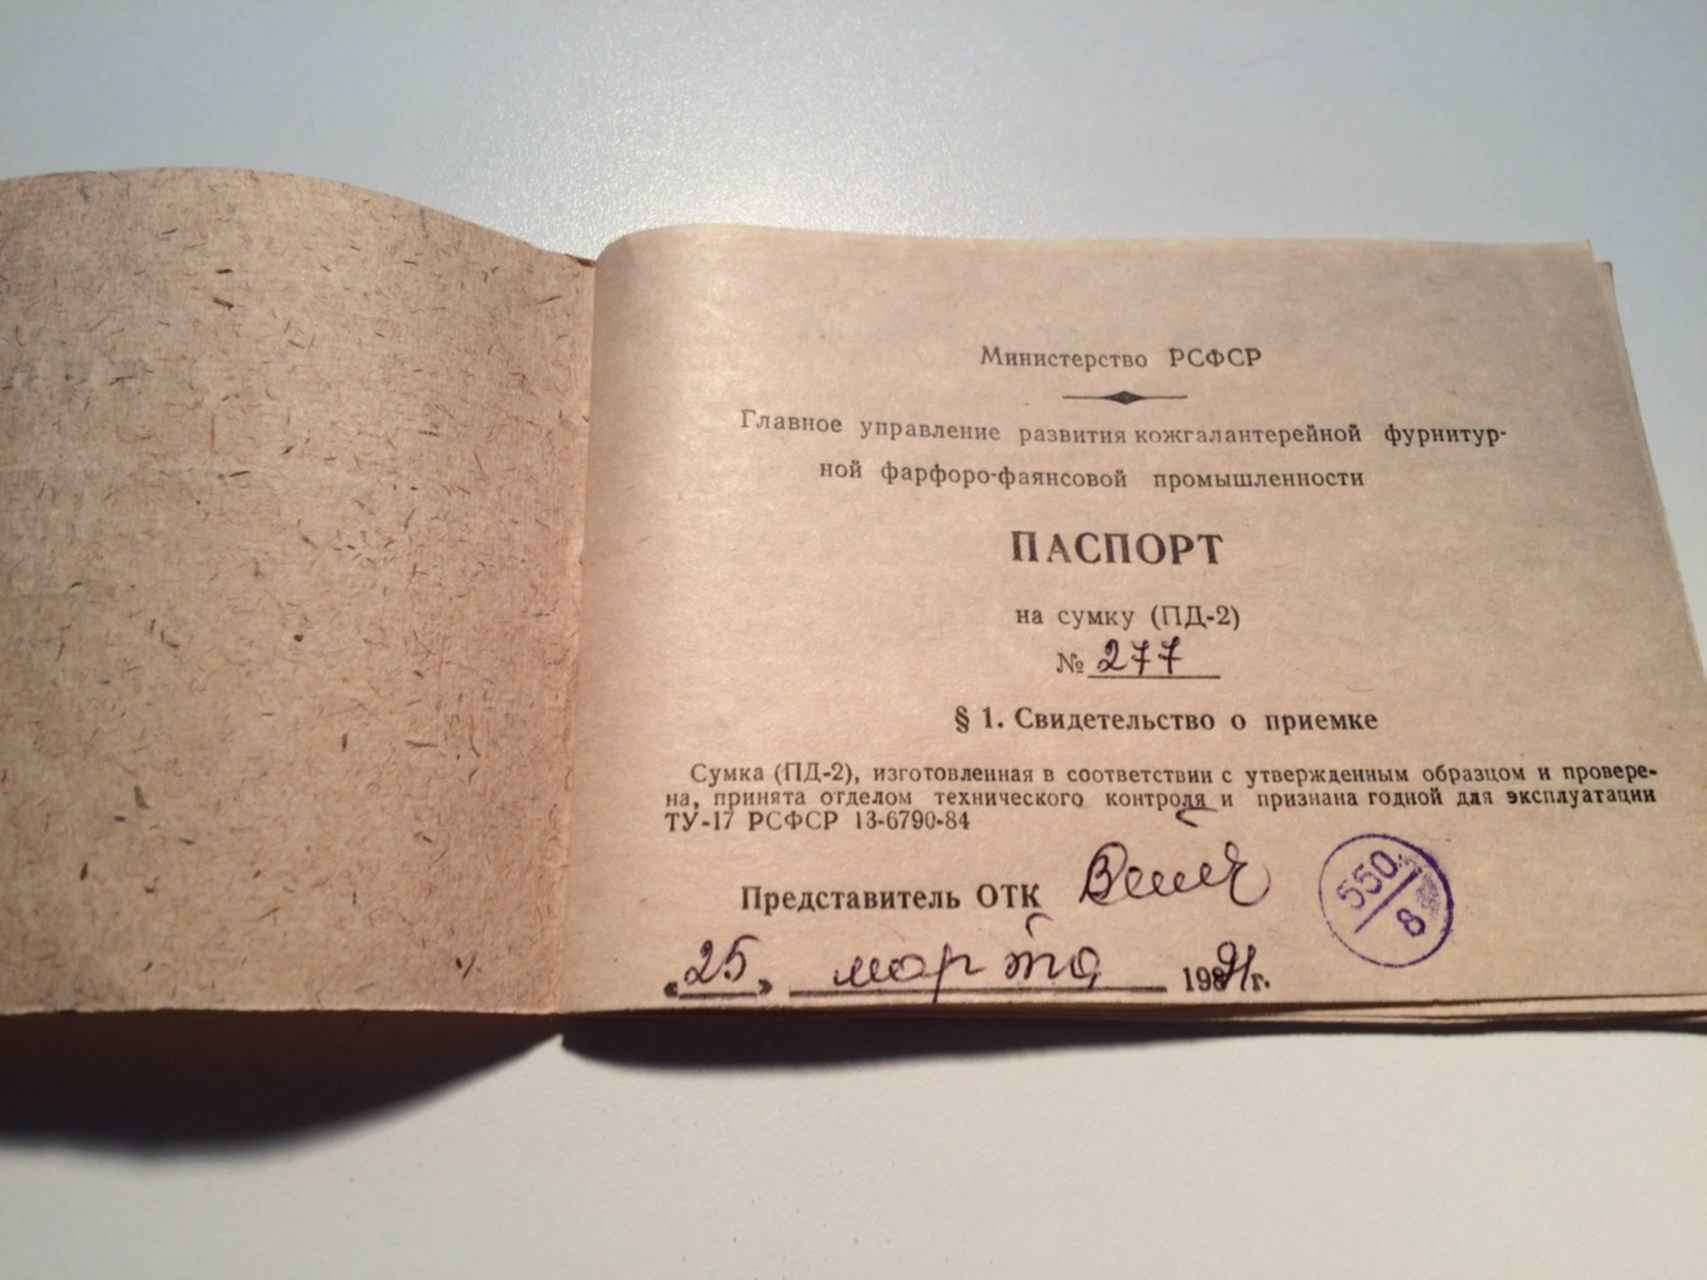 Министерство РСФСР
Главное управление развития кожгалантерейной фурнитур-
ной фарфоро-фаянсовой промышленности
ПАСПОРТ
на сумку (ПД-2)
№ 277
§ 1. Свидетельство о приемке
Сумка (ПД-2), изготовленная в соответствии с утвержденным образцом и провере-
на, принята отделом технического контроля и признана годной для эксплуатации
ТУ-17 РСФСР 13-6790-84
Представитель ОТК
550
8
«25» марта 1991г.